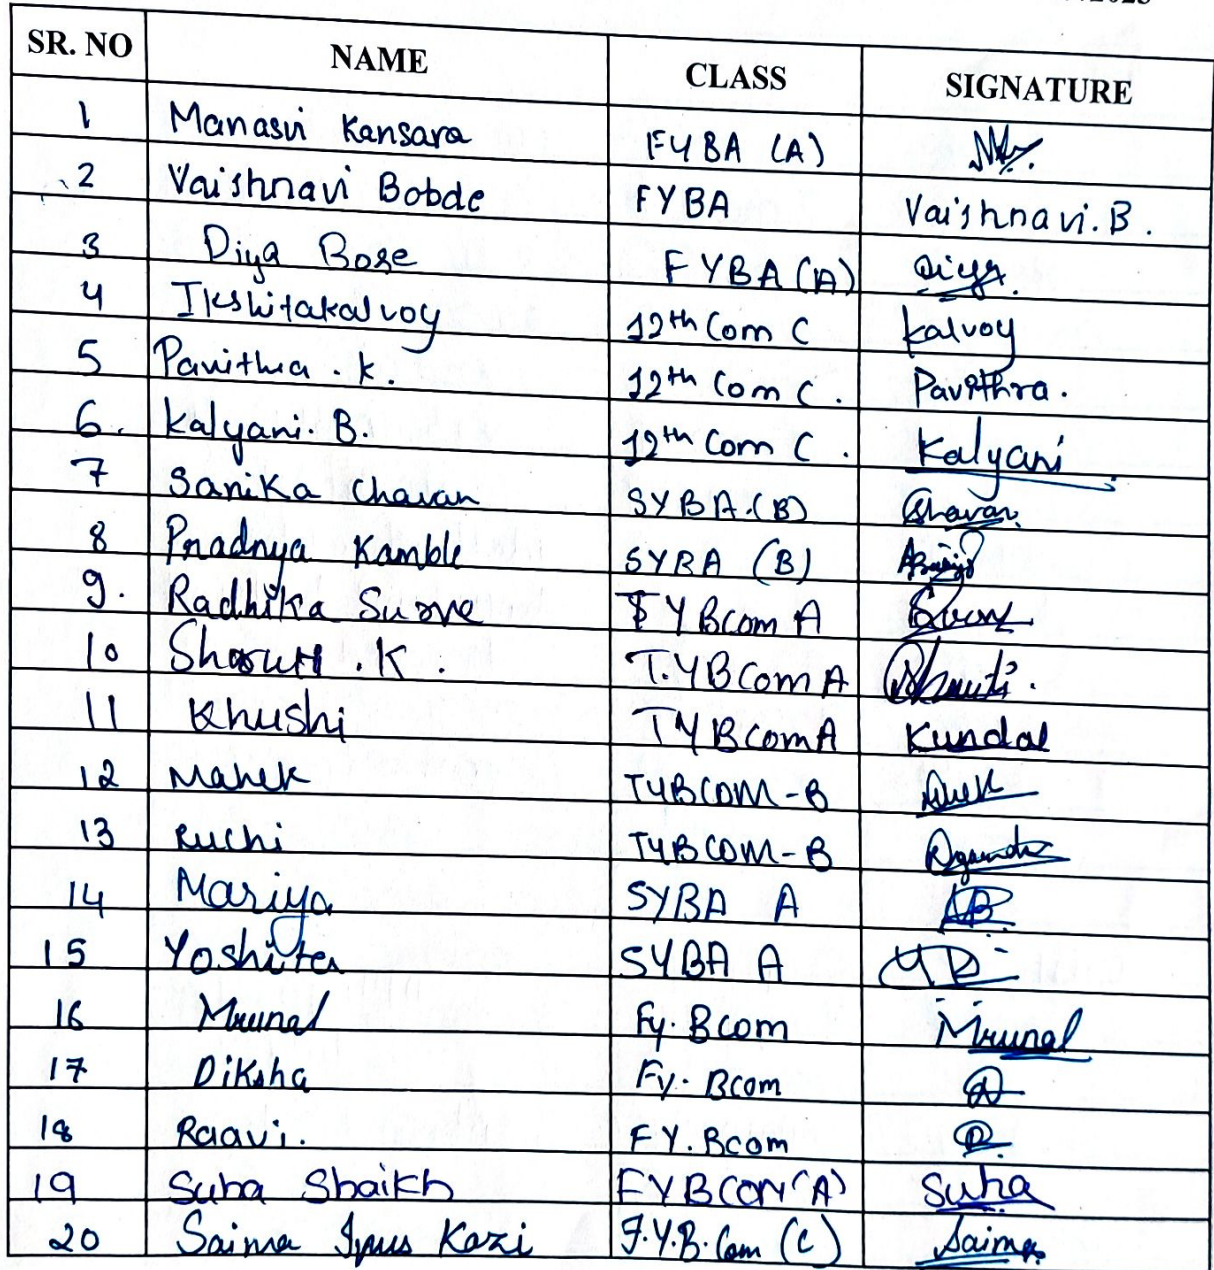 2025
SR. NO NAME CLASS SIGNATURE
1 Manasvi Kansara FYBA (A)
2 Vaishnavi Bobde FYBA Vaishnavi. B.
3 Diya Bose FYBA (A) Diya.
4 Ikshitakalvoy 12th Com C Kalvoy
5 Pavithra . K. 12th Com C . Pavithra.
6. Kalyani. B. 12th Com C . Kalyani
7 Sanika Chavan SYBA.(B) Chavan
8 Pradnya Kamble SYBA (B)
9. Radhika Surve TYBcom A
10 Shruti . K . T.YBComA Shruti.
11 Khushi TYBComA Kundal
12 Mahek TYBCOM-B
13 Ruchi TYBCOM-B
14 Mariya SYBA A
15 Yoshita SYBA A
16 Mrunal Fy. Bcom Mrunal
17 Diksha Fy. Bcom
18 Raavi. FY. Bcom
19 Suha Shaikh FYBCOM(A) Suha
20 Saima Kazi F.Y.B.Com (C) Saima